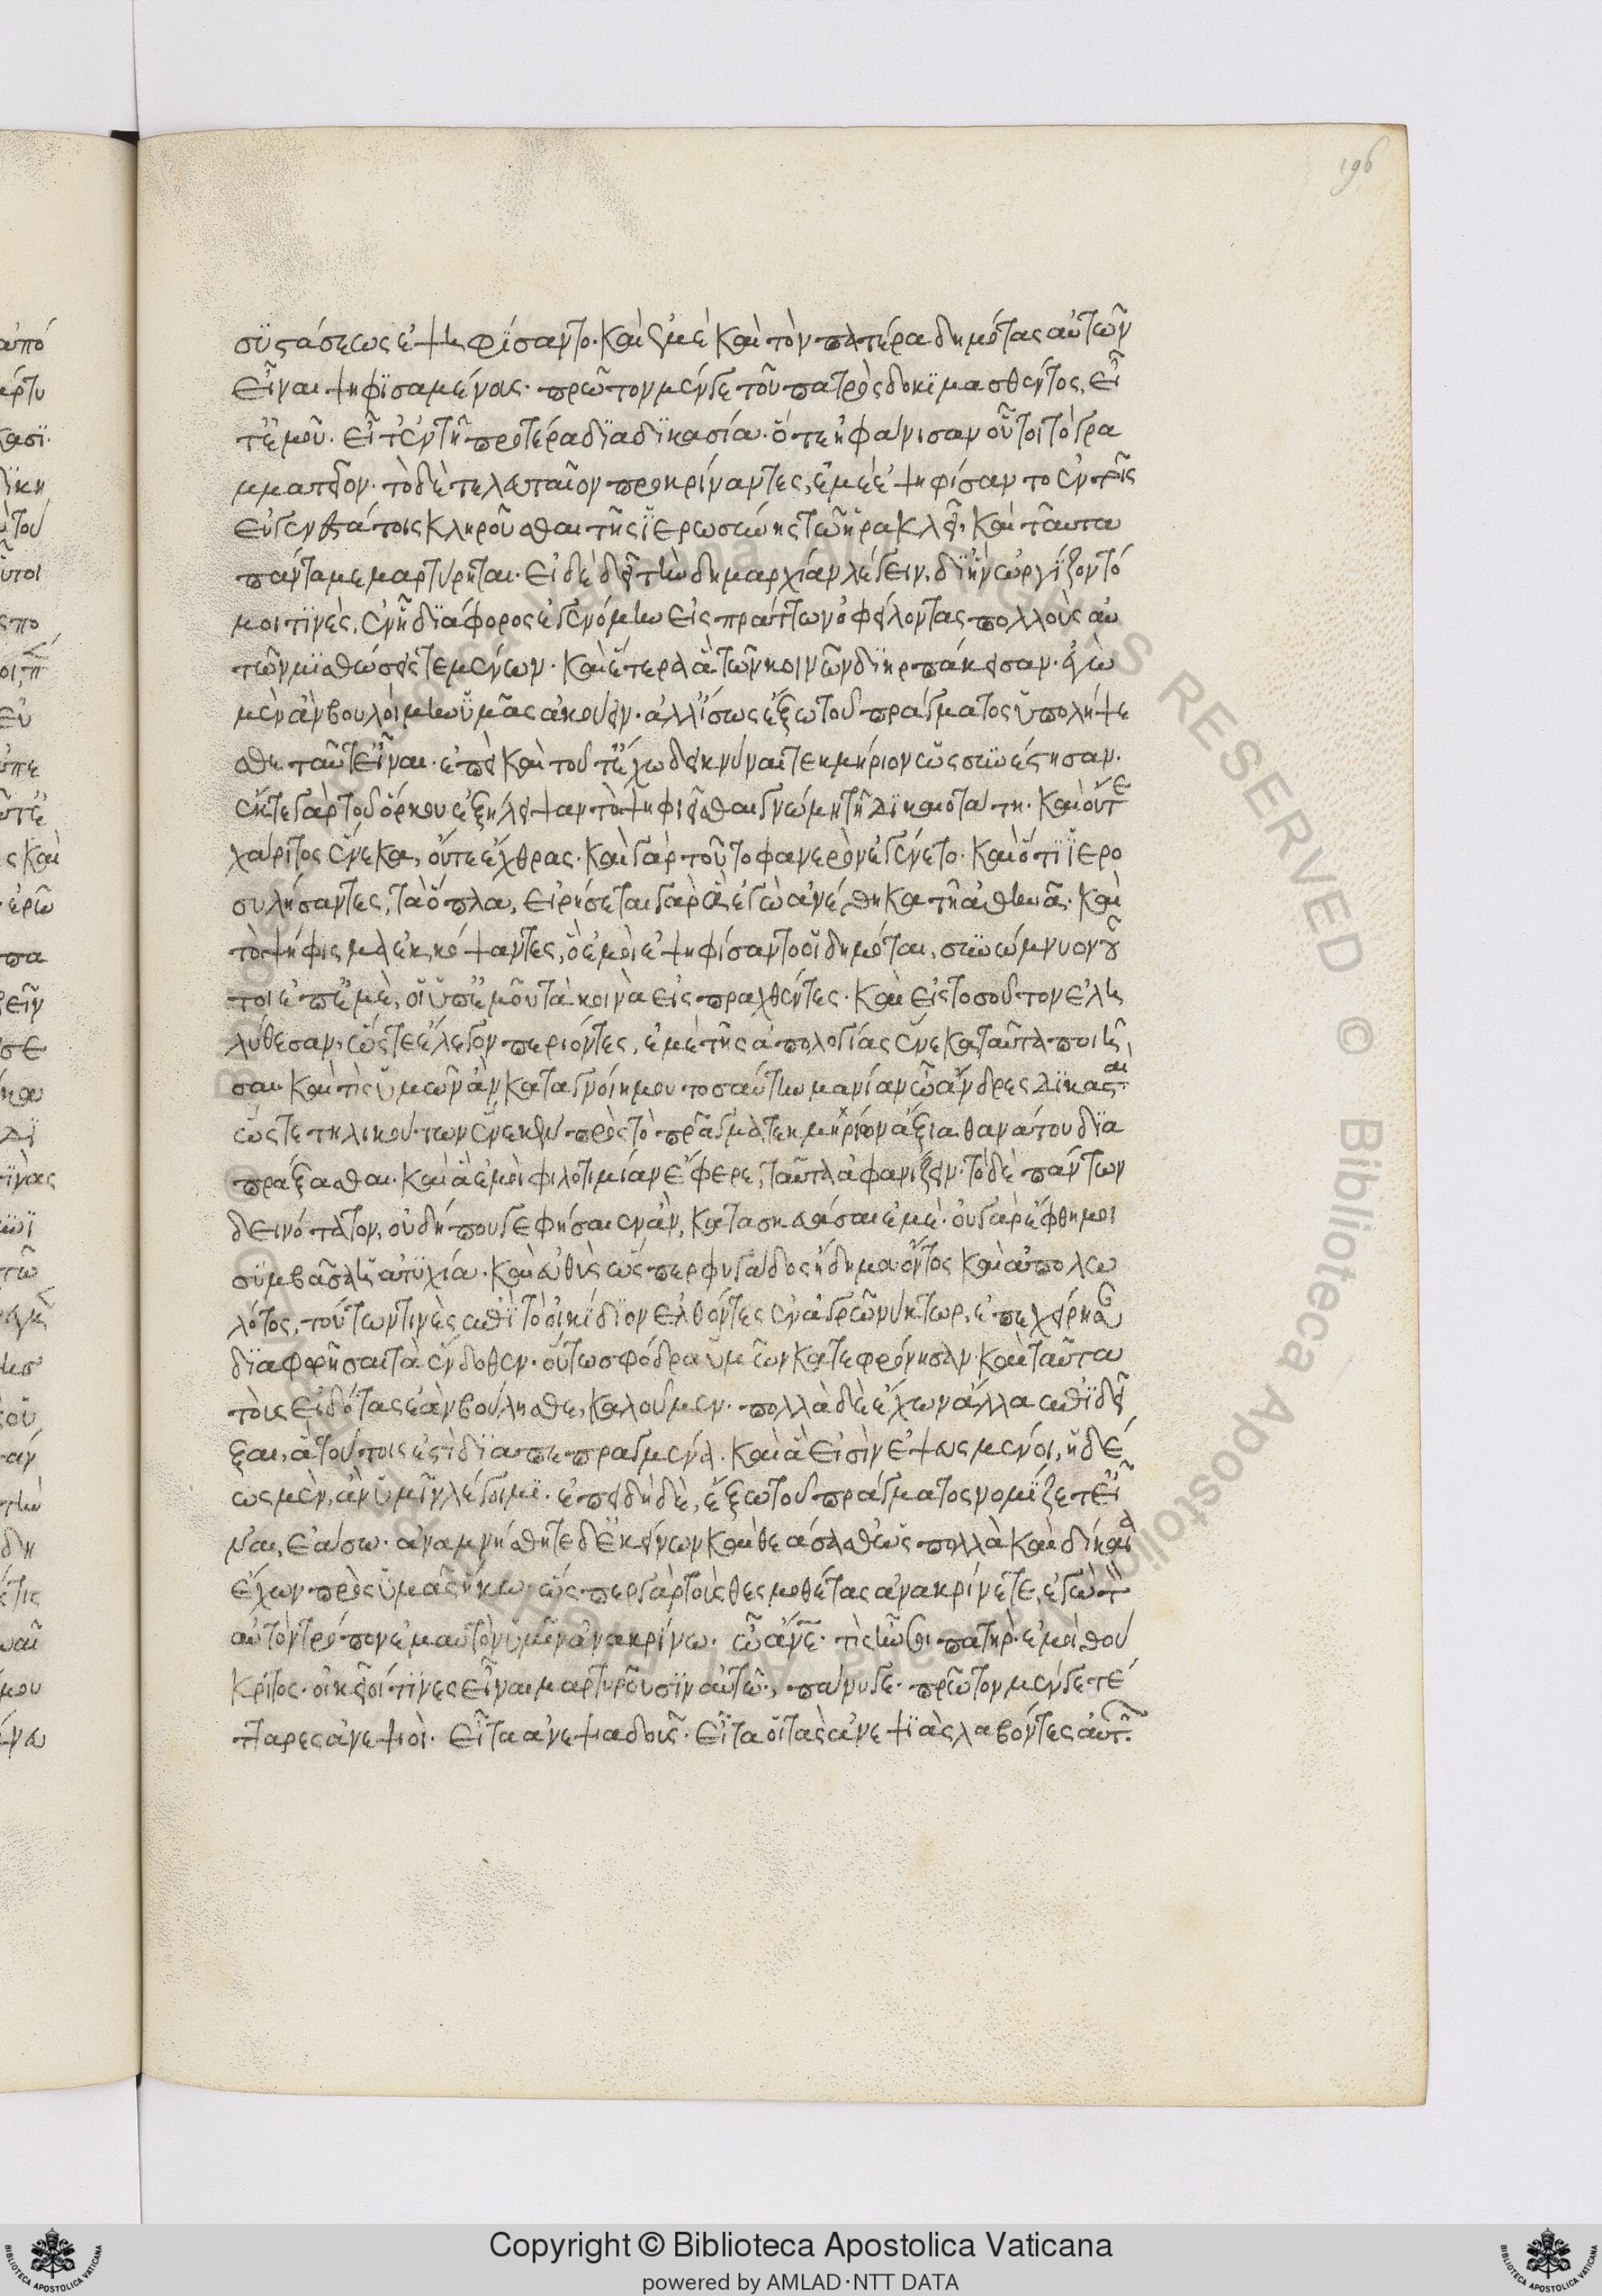 196
συστάσεως ἐψηφίσαντο· καὶ ἐμὲ καὶ τὸν πατέρα δημότας αὐτῶν
εἶναι ψηφισαμένους· πρῶτον μέν γε τοῦ πατρὸς δοκιμασθέντος, εἶ
τ' ἐμοῦ· εἶτ' ἐν τῇ προτέρα διαδικασία· ὅτ' ἠφάνισαν οὗτοι τὸ γρα
μματεῖον· τὸ δὲ τελευταῖον προκρίναντες, ἐμὲ ἐψηφίσαντο ἐν τοῖς
εὐγενεστάτοις κληροῦσθαι τῆς ἱερωσύνης τῶ ἡρακλεῖ· καὶ ταῦτα
πάντα μεμαρτύρηται· εἰ δὲ δεῖ τὴν δημαρχίαν λέγειν, δι' ἣν ὠργίζοντό
μοί τινες, ἐν ᾗ διάφορος ἐγενόμην εἰσπράττων ὀφείλοντας πολλοὺς αὐ
τῶν μισθώσεις τεμενῶν· καὶ ἕτερα ἃ τῶν κοινῶν διηρπάκεσαν· ἐγὼ
μὲν ἂν βουλοίμην ὑμᾶς ἀκούειν· ἀλλ' ἴσως ἔξω τοῦ πράγματος ὑπολήψε
σθε ταῦτ' εἶναι· ἐπεὶ καὶ τοῦτ' ἔχω δεικνύναι τεκμήριον ὡς συνέστησαν·
ἔκ τε γὰρ τοῦ ὅρκου ἐξήλειψαν τὸ ψηφιεῖσθαι γνώμη τῆ δικαιοτάτη· καὶ οὔτε
χάριτος ἕνεκα, οὔτε ἔχθρας· καὶ γὰρ τοῦτο φανερὸν ἐγένετο· καὶ ὅτι ἱερο
συλήσαντες, τὰ ὅπλα, εἰρήσεται γὰρ ἃ ἐγὼ ἀνέθηκα τῆ ἀθηνᾶ· καὶ
τὸ ψήφισμα ἐκκόψαντες, ὃ ἐμοὶ ἐψηφίσαντο οἱ δημόται, συνώμνυον οὗ
τοι ἐπ' ἐμὲ, οἱ ὑπ' ἐμοῦ τὰ κοινὰ εἰσπραχθέντες· καὶ εἰς τοσοῦτον ἐλη
λύθεσαν, ὥστε ἔλεγον περιόντες, ἐμὲ τῆς ἀπολογίας ἕνεκα ταῦτα ποιῆ
σαι· καὶ τίς ὑμῶν ἂν καταγνοίη μου τοσαύτην μανίαν ὦ ἄνδρες δικασταὶ
ὥστε τηλικούτων ἕνεκα πρὸς τὸ πρᾶγμα τεκμηρίων ἄξια θανάτου δια
πράξασθαι· καὶ ἃ ἐμοὶ φιλοτιμίαν ἔφερε, ταῦτα ἀφανίζειν· τὸ δὲ πάντων
δεινότατον, οὐ δήπου γε φήσαιεν ἂν, κατασκευάσαι ἐμέ· οὐ γὰρ ἔφθη μοι
συμβᾶσα ἡ ἀτυχία· καὶ εὐθὺς ὥσπερ φυγάδος ἤδη μου ὄντος καὶ ἀπολω
λότος, τούτων τινὲς ἐπὶ τὸ οἰκίδιον ἐλθόντες ἐν ἀγρῶ νύκτωρ, ἐπεχείρησαν
διαφορῆσαι τὰ ἔνδοθεν· οὕτω σφόδρα ὑμῶν κατεφρόνησαν· καὶ ταῦτα
τοὺς εἰδότας ἐὰν βούλησθε, καλοῦμεν· πολλὰ δὲ ἔχων ἄλλα ἐπιδεῖ
ξαι, ἃ τούτοις ἐστὶ διαπεπραγμένα· καὶ ἃ εἰσὶν ἐψευσμένοι, ἡδέ
ως μὲν, ἂν ὑμῖν λέγοιμι· ἐπειδὴ δὲ, ἔξω τοῦ πράγματος νομίζετ' εἶ
ναι, ἐάσω· ἀναμνήσθητε δ' ἐκείνων καὶ θεάσασθε ὡς πολλὰ καὶ δίκαια
ἔχων πρὸς ὑμᾶς ἥκω· ὥσπερ γὰρ τοὺς θεσμοθέτας ἀνακρίνετε, ἐγὼ τὸν
αὐτὸν τρόπον ἐμαυτὸν ὑμῖν ἀνακρίνω· ὦ ἄνθρωπε· τίς ἦν σοι πατήρ· ἐμοὶ θού
κριτος· οἰκεῖοί τινες εἶναι μαρτυροῦσιν αὐτῶ· πάνυ γε· πρῶτον μέν γε τέ
τταρες ἀνεψιοί· εἶτα ἀνεψιαδοῦς· εἶτα οἱ τὰς ἀνεψιὰς λαβόντες αὐτῶ·
Copyright © Biblioteca Apostolica Vaticana
powered by AMLAD·NTT DATA